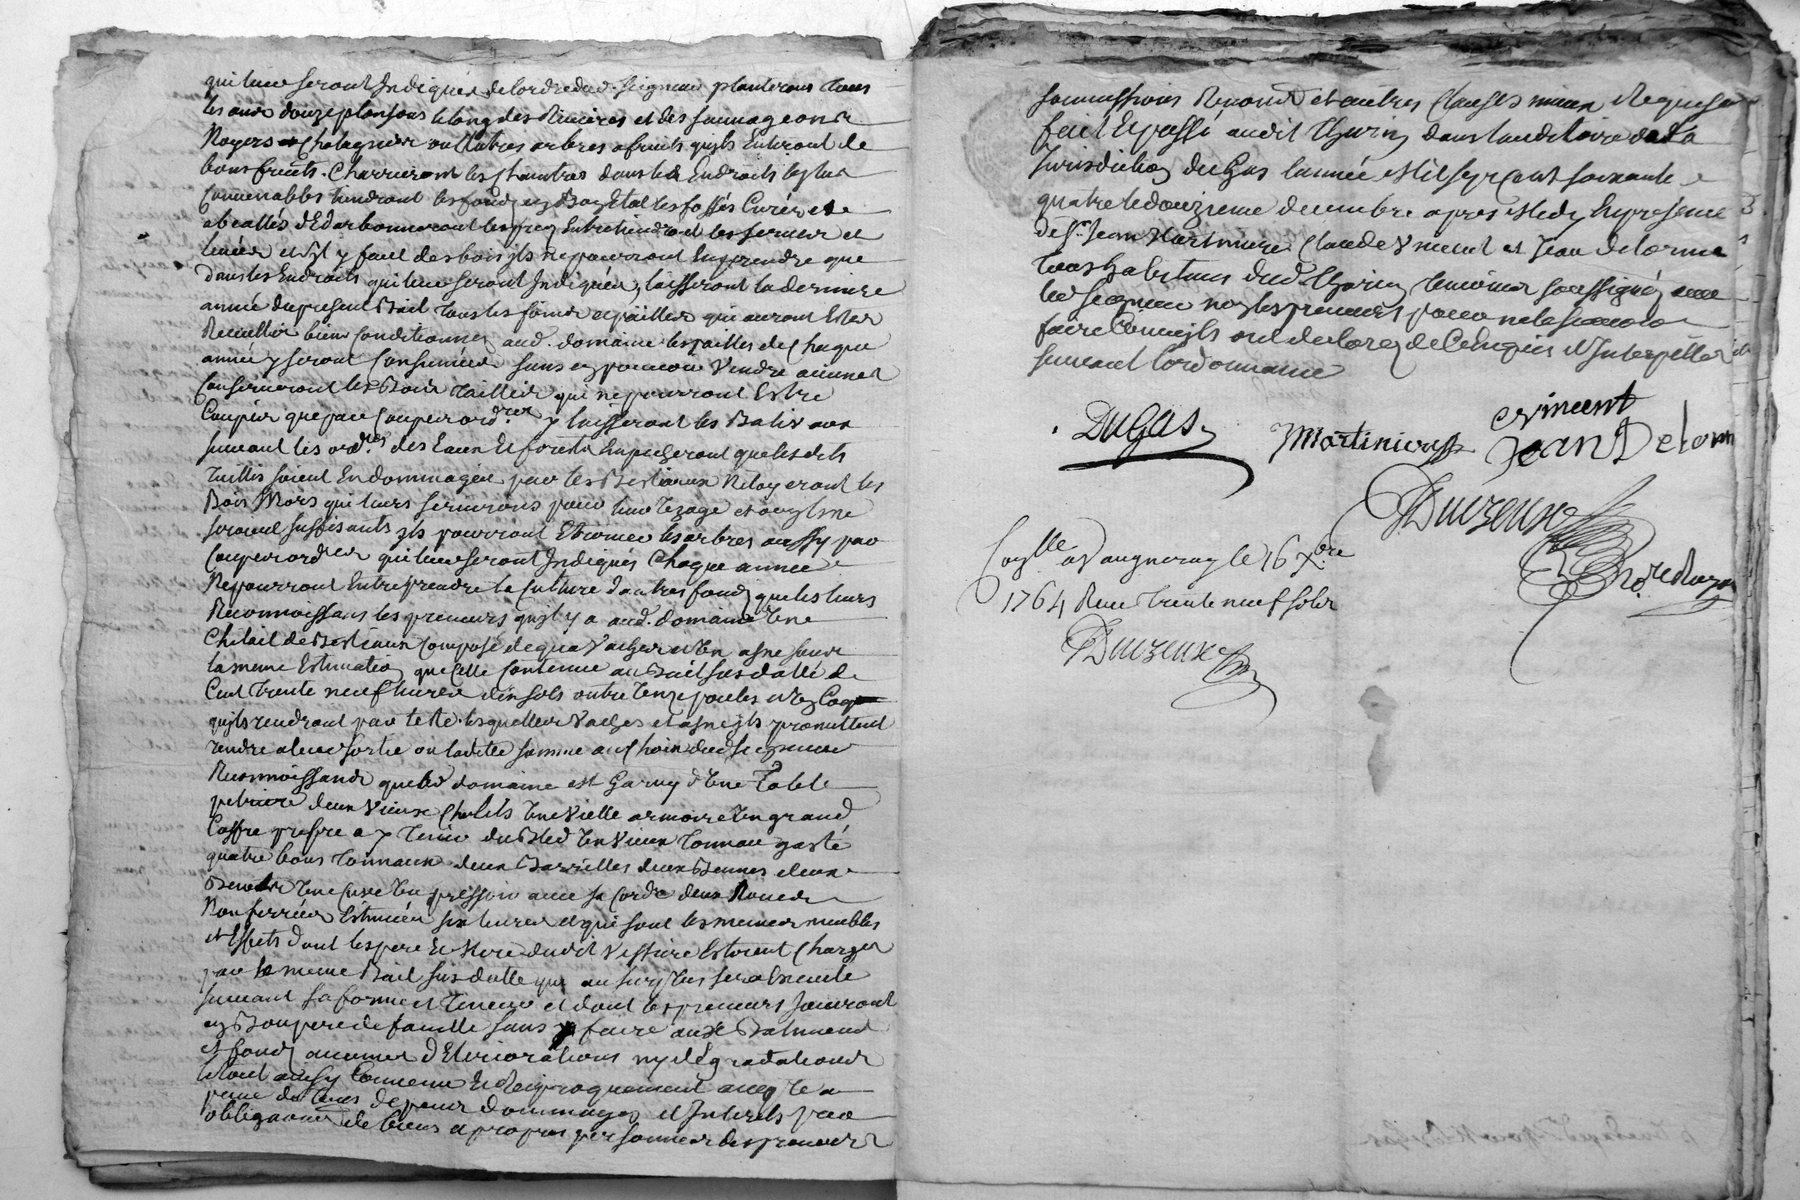 qui leur seront Indiqués de lordre dud. seigneur planteront tous
les ans douze plansons le long des Rivieres et des sauvageons
Noyers Chatagniers ou autres arbres a fruits quils Enteront de
bons fruits. Charrieront les chaintres dans les Endroits les plus
Convenables tiendront les fonds en Bon Etat les fossés Curés et
les prez Entretiendront les serrures et
et sil y faut des bois ils ne pourront En prendre que
dans les Endroits qui leur seront Indiqués, laisseront la derniere
année du present Bail tous les foins et pailles qui auront Estés
Recueillis bien Conditionnés aud. domaine les pailles de Chaque
année y seront Consumées sans en pouvoir Vendre aucunes
Conserveront les Bois Taillis qui ne pourront Estre
Coupés que par Coupes ordres y laisseront les Balivaux
suivant les ord.es des Eaux Et forests Empecheront que les dits
Taillis soient Endommagés par les Bestiaux Netoyeront les
Bois Mors qui leurs serviront pour leur et ou ils ne
seroient suffisants ils pourront Ebrancher les arbres aussy par
Coupes ordres qui leur seront Indiqués Chaque année
Ne pourront Entreprendre la Culture dautres fonds que les leurs
Reconnoissans les preneurs quil y a aud. domaine Une
Chitail de Bestiaux Composé de quatre Vaches et Un asne sous
la meme Estimation que Celle Contenue au Bail sus datté de
Cent trente neuf livres dix sols outre onze poules et Un Coq
quils rendront par teste lesquelles Vaches et asne ils promettent
rendre a leur sortie ou ladite somme au Choix dud seigneur
Reconnoissans que led domaine est Garny d'Une Table
petriere deux Vieux Chalits Une Vielle armoire Un grand
Coffre propre a y Tenir du Bled Un Vieux Tonneau gasté
quatre bons Tonneaux deux Barrilles deux Bennes deux
Benots Une Cuve Un pressoir avec sa Corde deux Roues
Non ferrées Estimées six livres et qui sont les memes meubles
et Effets dont les pere Et Mere dudit Vissiere Estoient Chargés
par le meme Bail sus datté qui au surplus sera Execute
suivant sa forme et Teneur et dont les preneurs Jouiront
en Bon pere de famille sans y faire aux Batiments
et fonds aucunes Deteriorations ny degradations
le tout ainsy Convenu Et Reciproquement accepté a
peine de tous depens dommages et Interets par
obligation de biens et propres personnes des preneurs
soumissions Renonc.s et autres Clauses mieux Requises
fait Et passé audit Thurin dans lauditoire de la
Jurisdiction du Gas lannée Mil sept Cent soixante
quatre le douzieme decembre apres Midy En presence
de Sr. Jean Martiniere Claude Vincent et Jean Delorme
tous habitans dud. Thurin temoins soussignés avec
led seigneur non les preneurs pour ne le scavoir
faire Comme ils ont declaré de Ce Enquis Et Interpellés
suivant lordonnance
Dugas
Martiniere
Vincent
Jean Delorm
Duizeux
No.re Royal
Con.lle a Vaugneray le 16 Xbre
1764 Reçu trente neuf sols
Duizeux